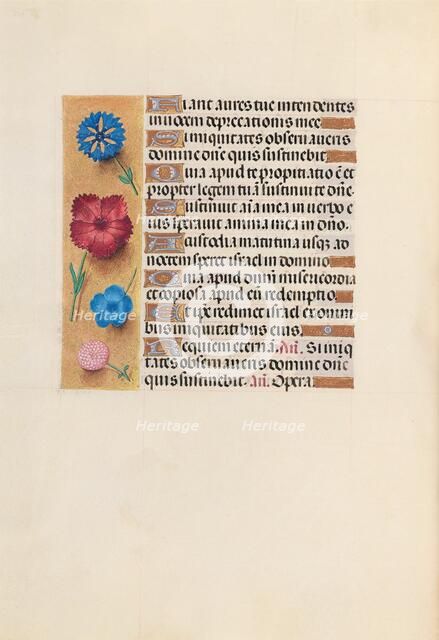 Fiant aures tue intendentes
in vocem deprecationis mee
Si iniquitates observaveris
domine dñe quis sustinebit
Quia apud te propitiatio ē et
propter legem tuā sustinui te dñe
Sustinuit aīa mea in verbo e
ius speravit anima mea in dño.
A custodia matutina usqz ad
noctem speret israel in domino
Quia apud dñm misericordia
et copiosa apud eū redemptio.
Et ipse redimet israel ex omni
bus iniquitatibus eius.
Requiem eternā. Añ. Si iniq
tates observaveris domine dñe
quis sustinebit. Añ. Opera
Heritage
Heritage
Heritage
Heritage